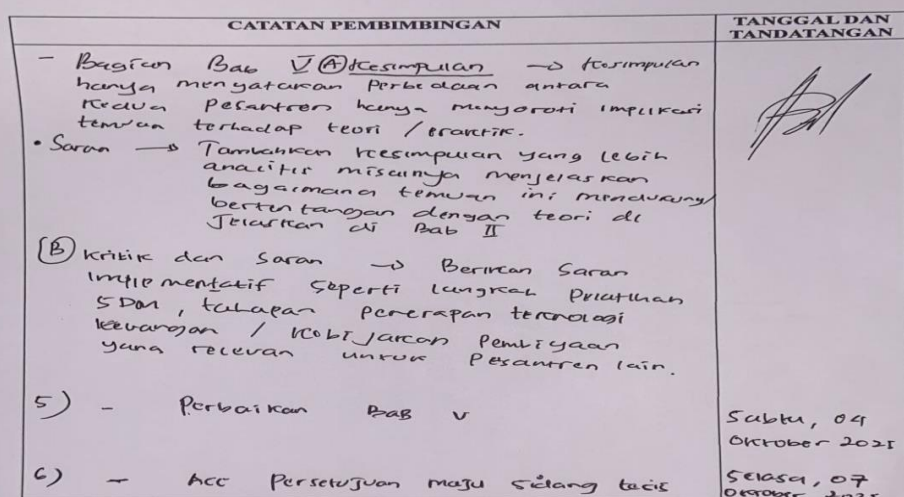 CATATAN PEMBIMBINGAN
TANGGAL DAN
TANDATANGAN
- Bagian Bab V (A) Kesimpulan → Kesimpulan
hanya menyatakan Perbedaan antara
Kedua Pesantren hanya menyoroti implikasi
temuan terhadap teori / praktik.
• Saran → Tambahkan Kesimpulan yang lebih
analitis misalnya menjelaskan
bagaimana temuan ini mendukung/
bertentangan dengan teori di
Jelaskan di Bab II
(B) Kritik dan Saran → Berikan Saran
Implementatif Seperti langkah Pelatihan
SDM, tahapan penerapan teknologi
keuangan / Kebijakan Pembiyaan
yang relevan untuk Pesantren lain.
5) - Perbaikan BAB V
Sabtu, 04
Oktober 2025
6) - Acc Persetujuan maju sidang tesis
Selasa, 07
Oktober 2025